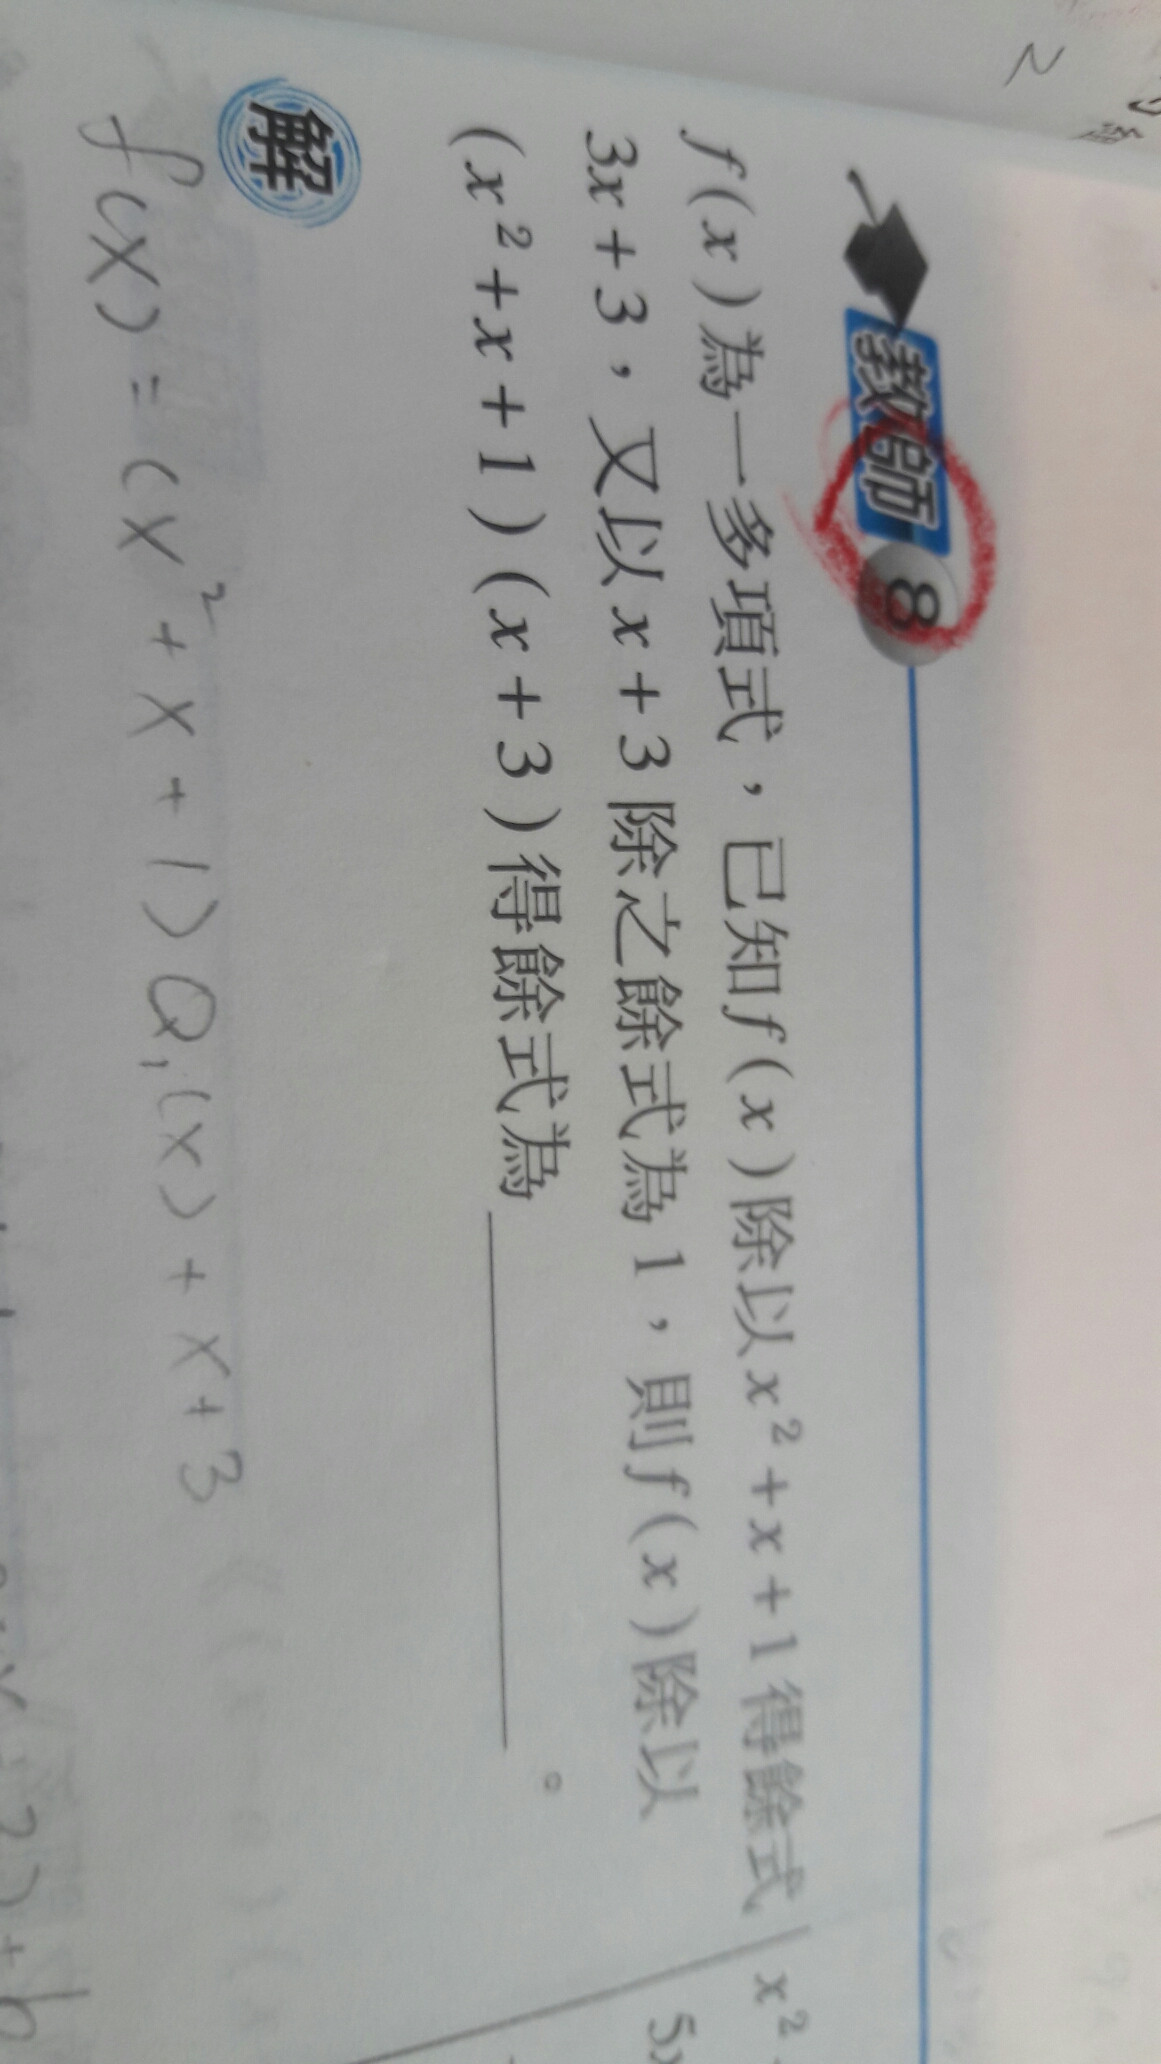 教師 8
f(x)為一多項式，已知f(x)除以x²+x+1得餘式
3x+3，又以x+3除之餘式為1，則f(x)除以
(x²+x+1)(x+3)得餘式為____________。
解
f(x)=(x²+x+1)Q₁(x)+x+3
x²
5x
2)+b
2